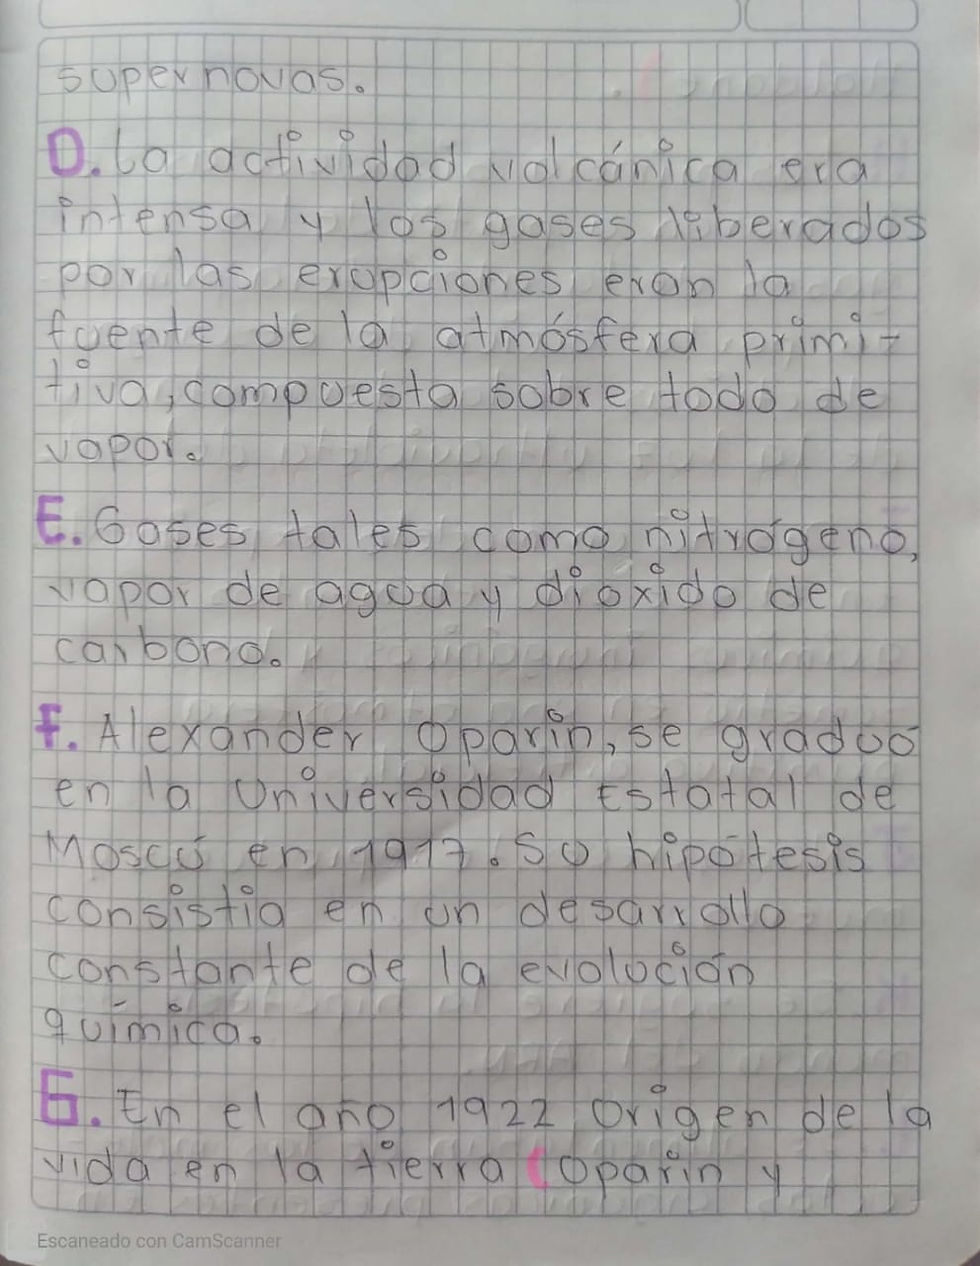 supernovas.
D. La actividad volcánica era
intensa y los gases liberados
por las erupciones eran la
fuente de la atmósfera primi-
tiva, compuesta sobre todo de
vapor.
E. Gases tales como nitrógeno,
vapor de agua y dióxido de
carbono.
F. Alexander Oparin, se graduó
en la Universidad Estatal de
Moscú en 1917. Su hipótesis
consistia en un desarrollo
constante de la evolución
química.
G. En el año 1922 origen de la
vida en la tierra (Oparin y
Escaneado con CamScanner